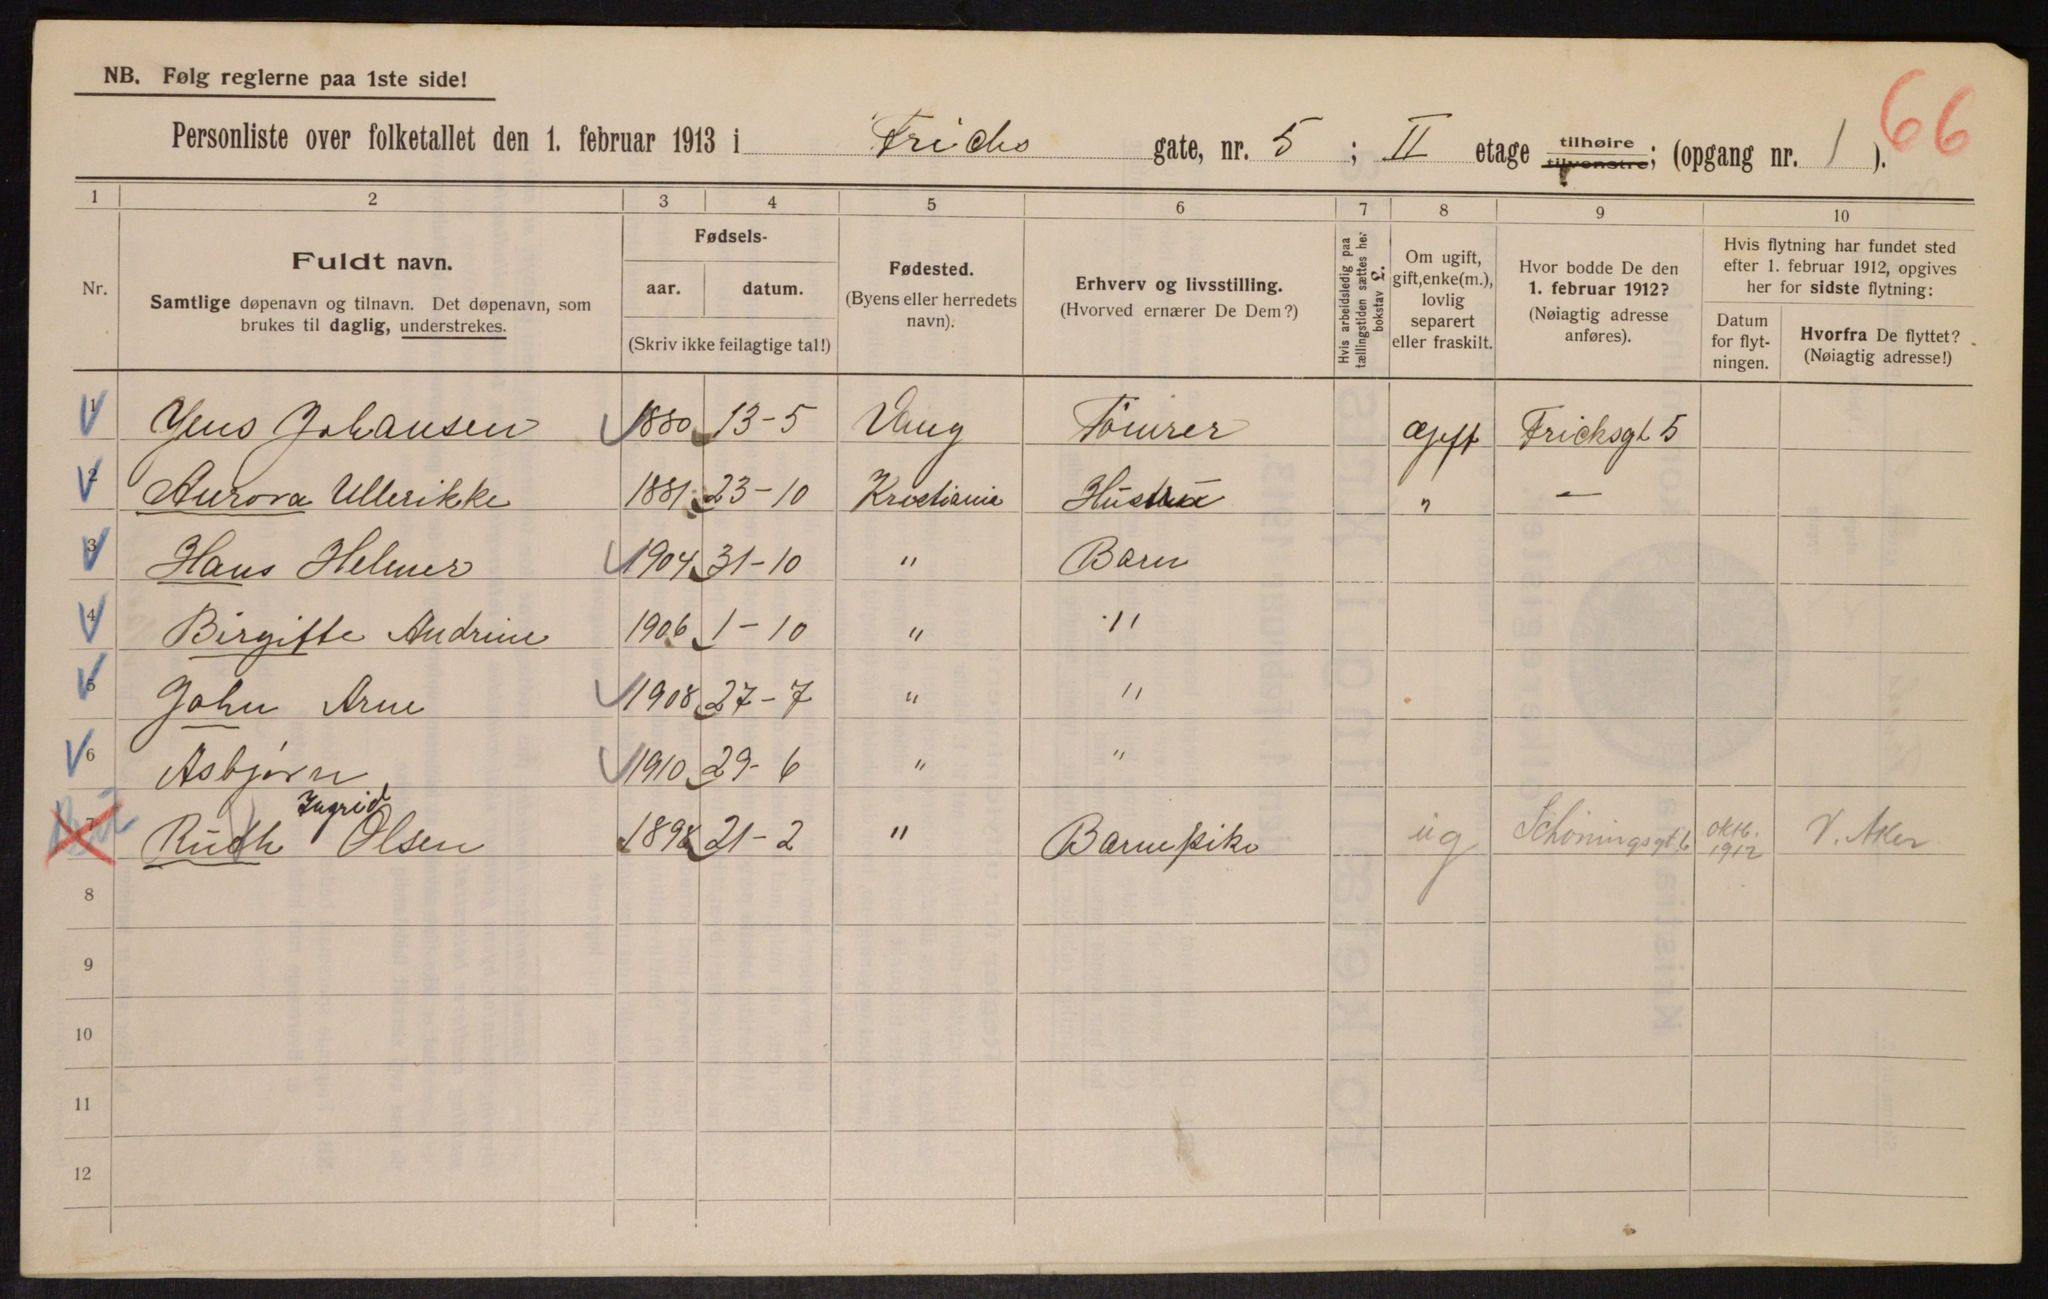 NB. Følg reglerne paa 1ste side!
66
Personliste over folketallet den 1. februar 1913 i Frichs gate, nr. 5 ; II etage tilhøire tilvenstre; (opgang nr. 1 ).
1 2 3 4 5 6 7 8 9 10
Nr.
Fuldt navn.
Samtlige døpenavn og tilnavn. Det døpenavn, som
brukes til daglig, understrekes.
Fødsels-
aar. datum.
(Skriv ikke feilagtige tal!)
Fødested.
(Byens eller herredets
navn).
Erhverv og livsstilling.
(Hvorved ernærer De Dem?)
Hvis arbeidsledig paa
tællingstiden sættes her
bokstav L.
Om ugift,
gift, enke(m.),
lovlig
separert
eller fraskilt.
Hvor bodde De den
1. februar 1912?
(Nøiagtig adresse
anføres).
Hvis flytning har fundet sted
efter 1. februar 1912, opgives
her for sidste flytning:
Datum
for flyt-
ningen.
Hvorfra De flyttet?
(Nøiagtig adresse!)
1 Jens Johansen 1880 13-5 Vang Tömrer Gift Fricksgt 5
2 Aurora Ullerikke 1881 23-10 Kristiania Hustru " —
3 Hans Helmer 1904 31-10 " Barn
4 Birgitte Andrine 1906 1-10 " "
5 John Arne 1908 27-7 " "
6 Asbjørn 1910 29-6 " "
Ingrid
7 Ruth Olsen 1898 21-2 " Barnepike ug Schöningsgt. 6 okt. 1912 V. Aker
8
9
10
11
12